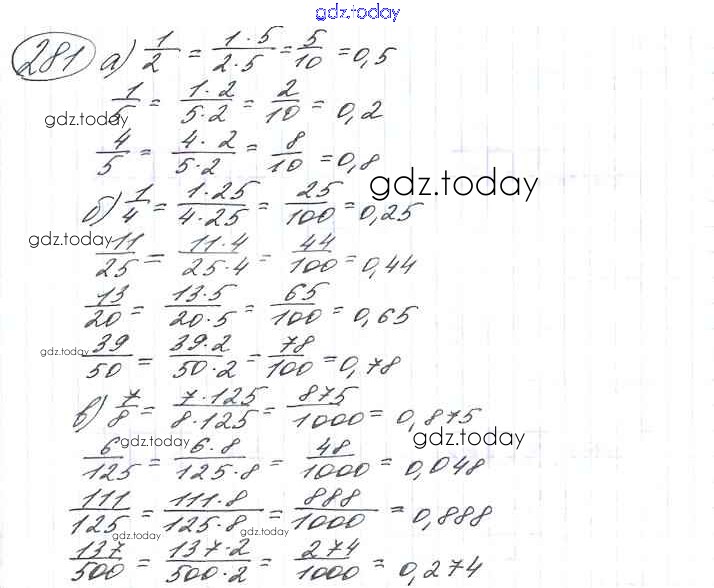 gdz.today
281 а) 1/2 = 1·5/2·5 = 5/10 = 0,5
1/5 = 1·2/5·2 = 2/10 = 0,2
gdz.today
4/5 = 4·2/5·2 = 8/10 = 0,8
gdz.today
б) 1/4 = 1·25/4·25 = 25/100 = 0,25
gdz.today
11/25 = 11·4/25·4 = 44/100 = 0,44
13/20 = 13·5/20·5 = 65/100 = 0,65
gdz.today
39/50 = 39·2/50·2 = 78/100 = 0,78
в) 7/8 = 7·125/8·125 = 875/1000 = 0,875
gdz.today
gdz.today
6/125 = 6·8/125·8 = 48/1000 = 0,048
111/125 = 111·8/125·8 = 888/1000 = 0,888
gdz.today
gdz.today
137/500 = 137·2/500·2 = 274/1000 = 0,274